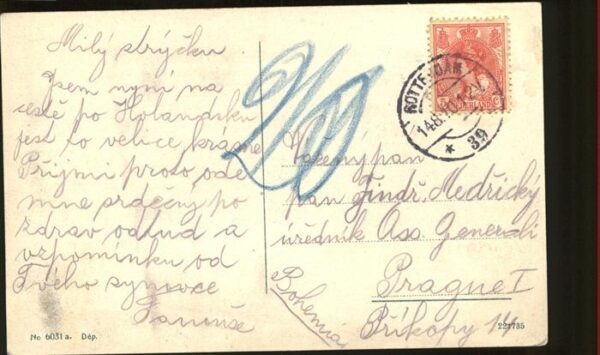 Milý strýčku.
Jsem nyní na
cestě po Holandsku
jest to velice krásné
Přijmi proto ode
mne srdečný po
zdrav odtud a
vzpomínku od
Tvého synovce
20
ROTTERDAM
39
NEDERLAND
Vážený pan
pan Jindř. Medřický
úředník Ass. Generali
Prague I
Příkopy
Bohemia
No 6031a. Dép.
221735